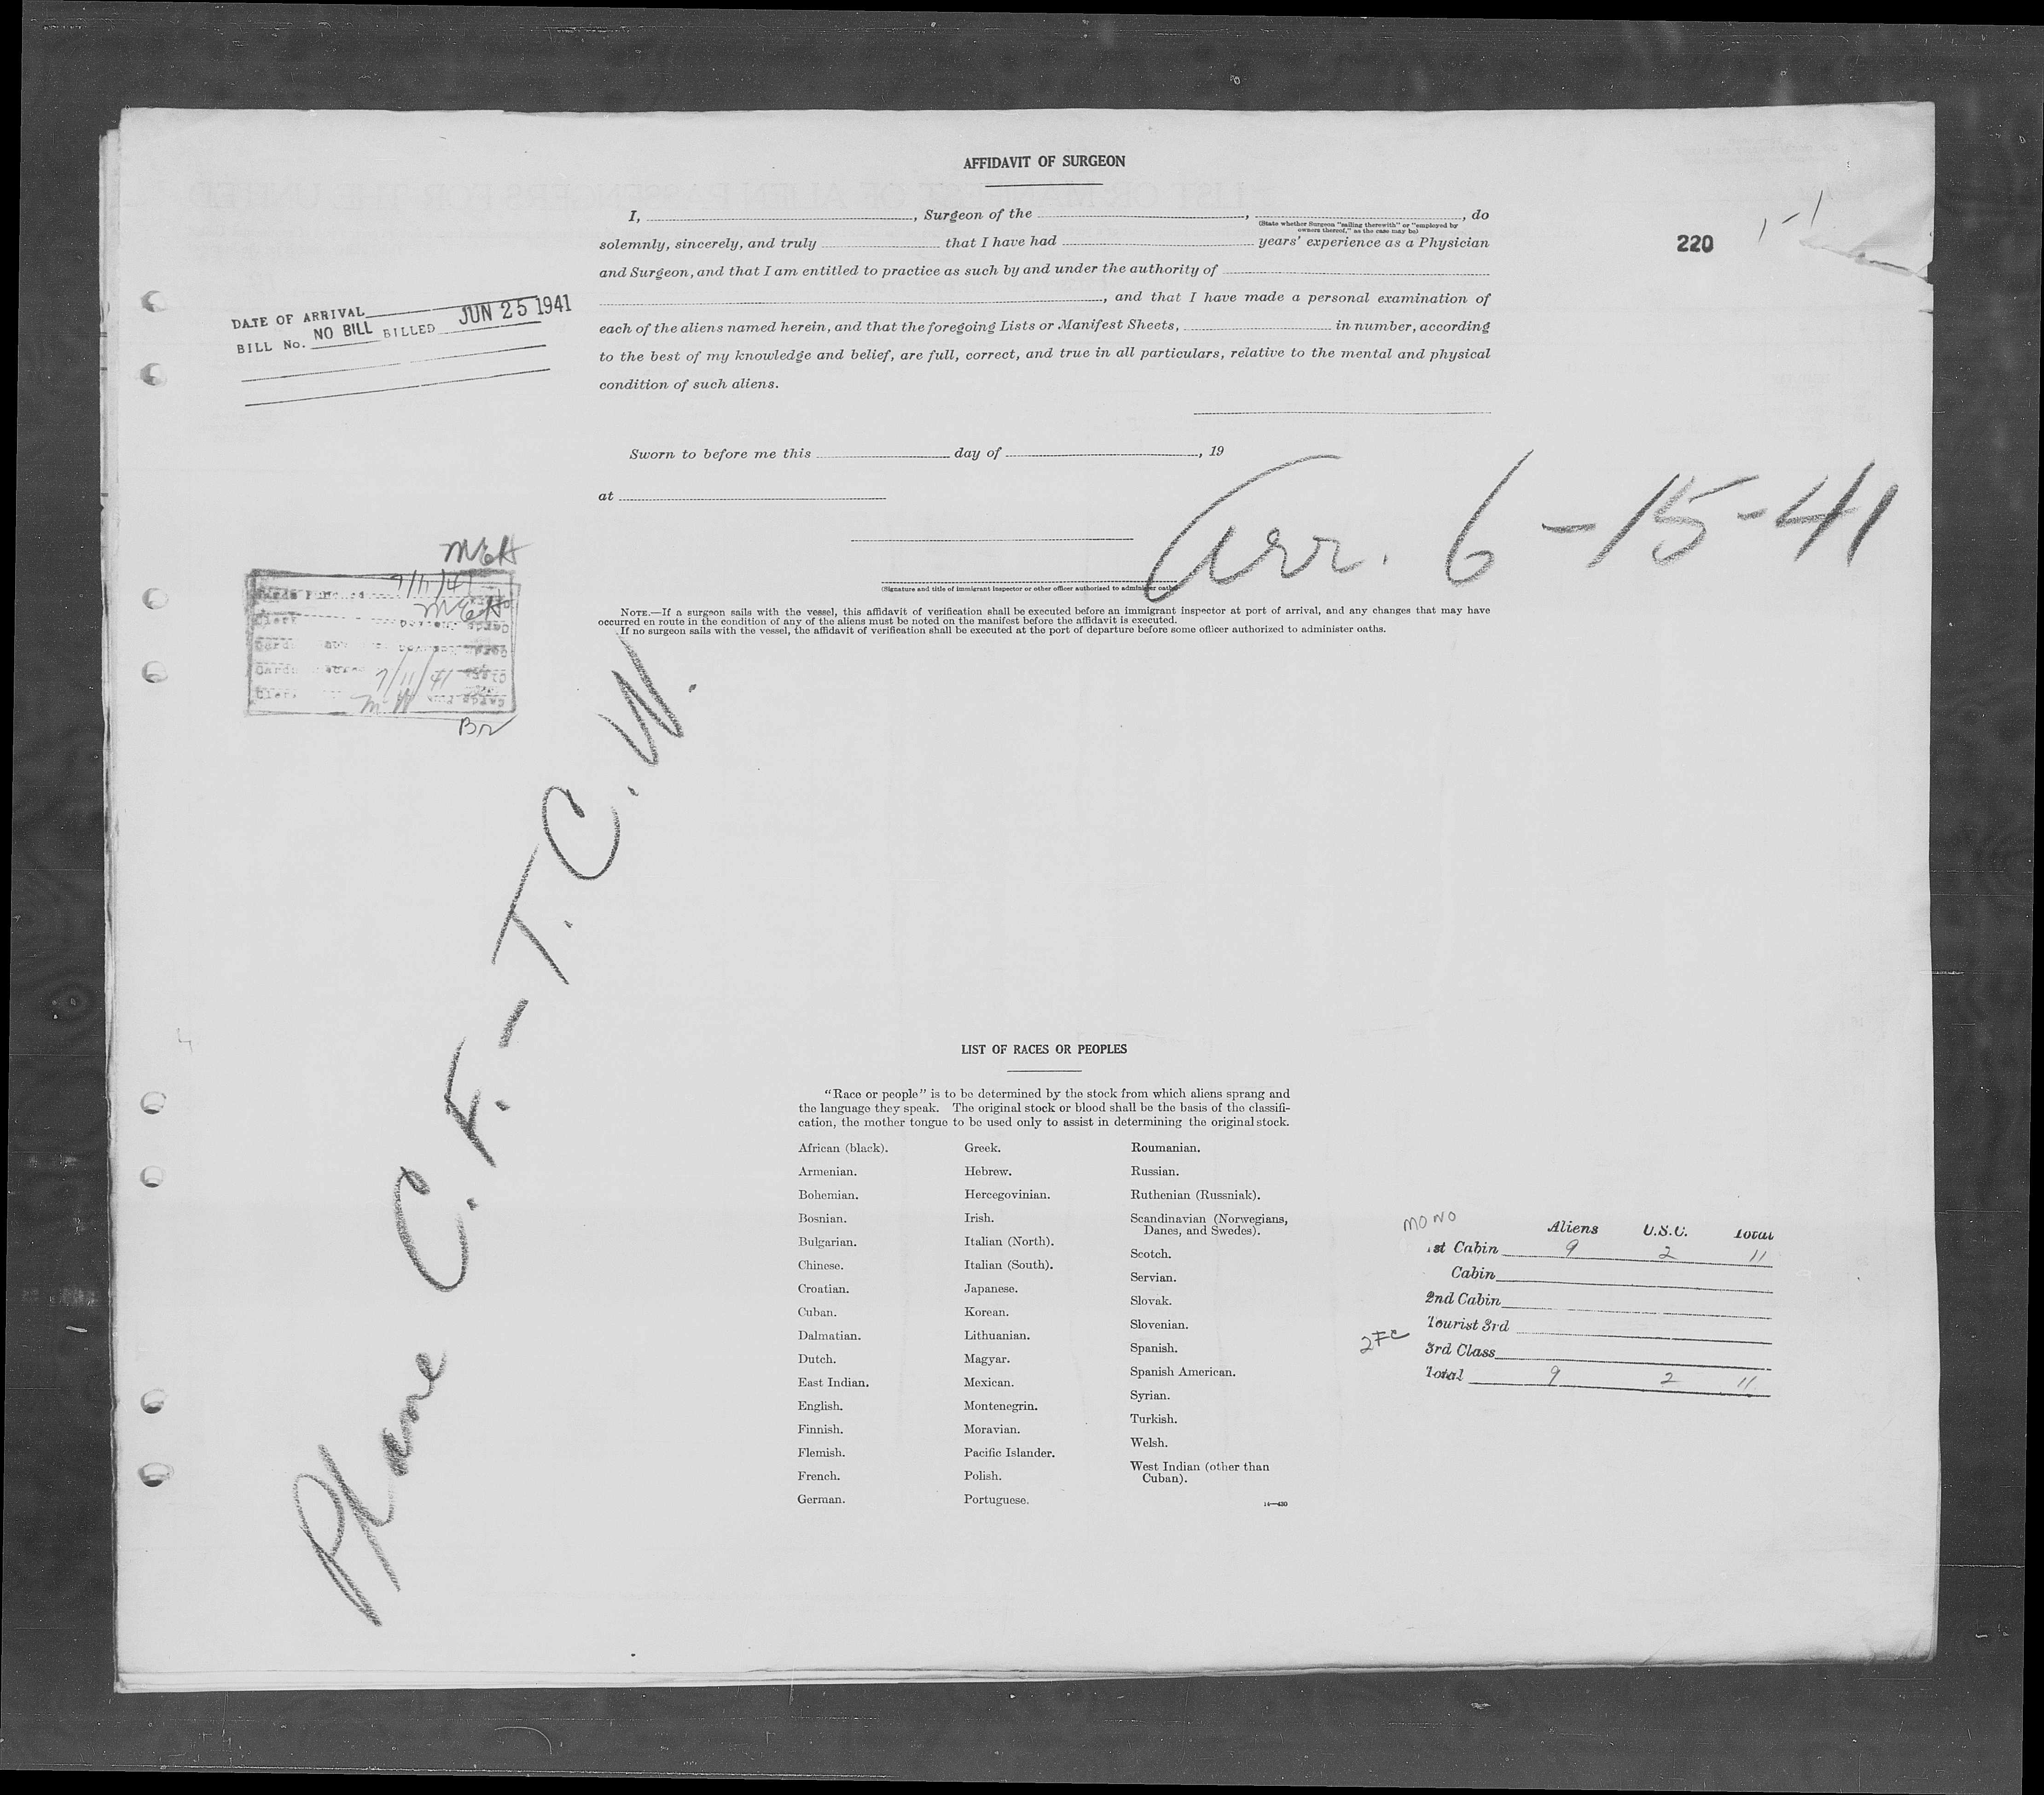 AFFIDAVIT OF SURGEON
I, , Surgeon of the , , do
(State whether Surgeon "sailing therewith" or "employed by
owners thereof," as the case may be)
solemnly, sincerely, and truly that I have had years' experience as a Physician
and Surgeon, and that I am entitled to practice as such by and under the authority of
, and that I have made a personal examination of
each of the aliens named herein, and that the foregoing Lists or Manifest Sheets, in number, according
to the best of my knowledge and belief, are full, correct, and true in all particulars, relative to the mental and physical
condition of such aliens.
220
1-1
DATE OF ARRIVAL
JUN 25 1941
BILL No. NO BILL BILLED
Sworn to before me this day of , 19
at
Arr. 6-15-41
(Signature and title of immigrant inspector or other officer authorized to administer oaths)
NOTE.—If a surgeon sails with the vessel, this affidavit of verification shall be executed before an immigrant inspector at port of arrival, and any changes that may have
occurred en route in the condition of any of the aliens must be noted on the manifest before the affidavit is executed.
If no surgeon sails with the vessel, the affidavit of verification shall be executed at the port of departure before some officer authorized to administer oaths.
MEH
7/11/41
MEH
Clerk
7/11/41
Plane C.F.-T.C.W.
LIST OF RACES OR PEOPLES
"Race or people" is to be determined by the stock from which aliens sprang and
the language they speak. The original stock or blood shall be the basis of the classifi-
cation, the mother tongue to be used only to assist in determining the original stock.
African (black).
Armenian.
Bohemian.
Bosnian.
Bulgarian.
Chinese.
Croatian.
Cuban.
Dalmatian.
Dutch.
East Indian.
English.
Finnish.
Flemish.
French.
German.
Greek.
Hebrew.
Hercegovinian.
Irish.
Italian (North).
Italian (South).
Japanese.
Korean.
Lithuanian.
Magyar.
Mexican.
Montenegrin.
Moravian.
Pacific Islander.
Polish.
Portuguese.
Roumanian.
Russian.
Ruthenian (Russniak).
Scandinavian (Norwegians,
Danes, and Swedes).
Scotch.
Servian.
Slovak.
Slovenian.
Spanish.
Spanish American.
Syrian.
Turkish.
Welsh.
West Indian (other than
Cuban).
14—430
MONO
Aliens U.S.C. Total
1st Cabin 9 2 11
Cabin
2nd Cabin
Tourist 3rd
2FC
3rd Class
Total 9 2 11